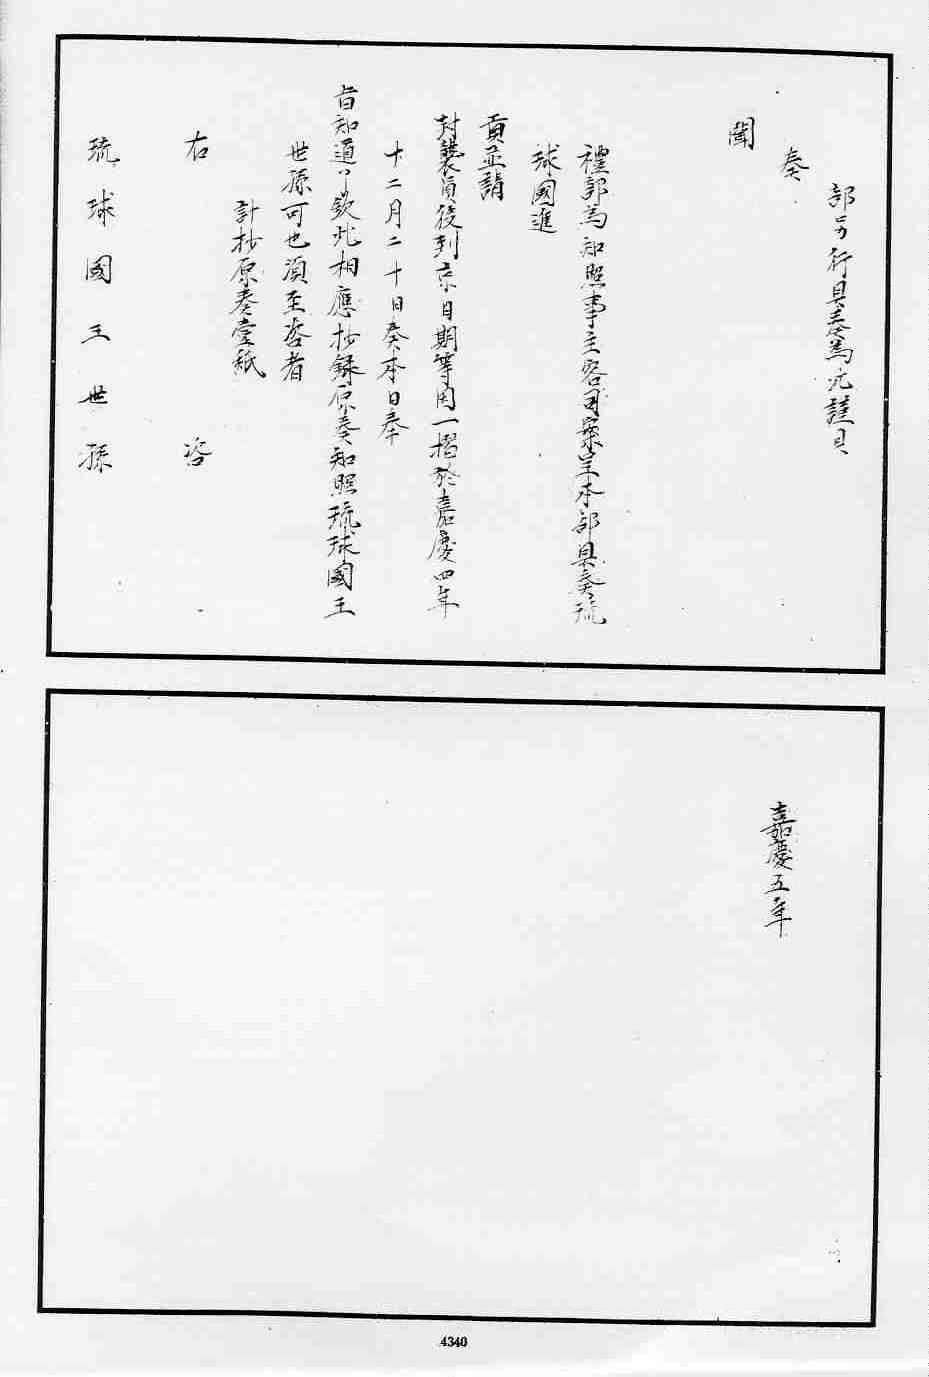 部另行具奏為此謹具
奏
聞
禮部為知照事主客司案呈本部具奏琉
球國進
貢並請
封襲員役到京日期等因一摺於嘉慶四年
十二月二十日奏本日奉
旨知道了欽此相應抄錄原奏知照琉球國王
世孫可也須至咨者
計抄原奏壹紙
右咨
琉球國王世孫
嘉慶五年
4340